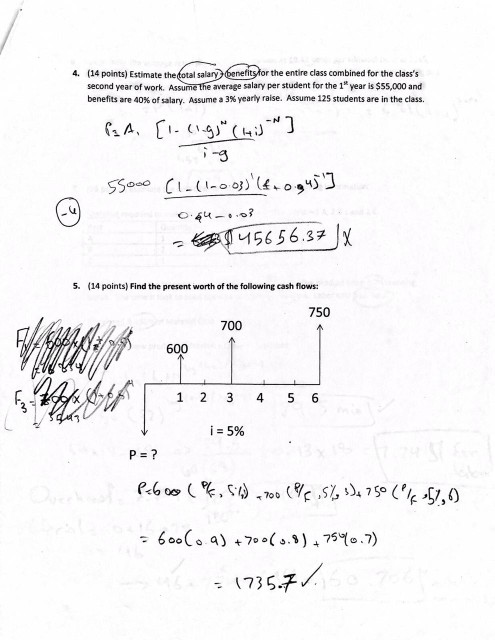 4. (14 points) Estimate the total salary + benefits for the entire class combined for the class's
second year of work. Assume the average salary per student for the 1st year is $55,000 and
benefits are 40% of salary. Assume a 3% yearly raise. Assume 125 students are in the class.
P=A₁ [1-(1-g)^N (1+i)^-N]
i-g
55000 [1-(1-0.03)^1 (1+0.4)^-1]
0.4-0.03
-4
= $45656.37 X
5. (14 points) Find the present worth of the following cash flows:
750
700
600
1 2 3 4 5 6
i = 5%
P = ?
P=600 (P/F, 5%, 1) +700 (P/F, 5%, 3)+ 750 (P/F, 5%, 6)
= 600(0.9) +700(0.8) + 750(0.7)
= 1735.7 ✓